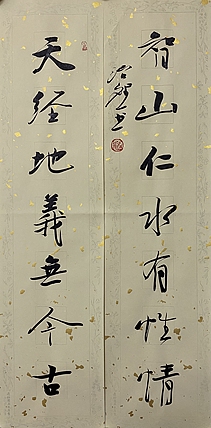 智山仁水有性情
天经地義無今古